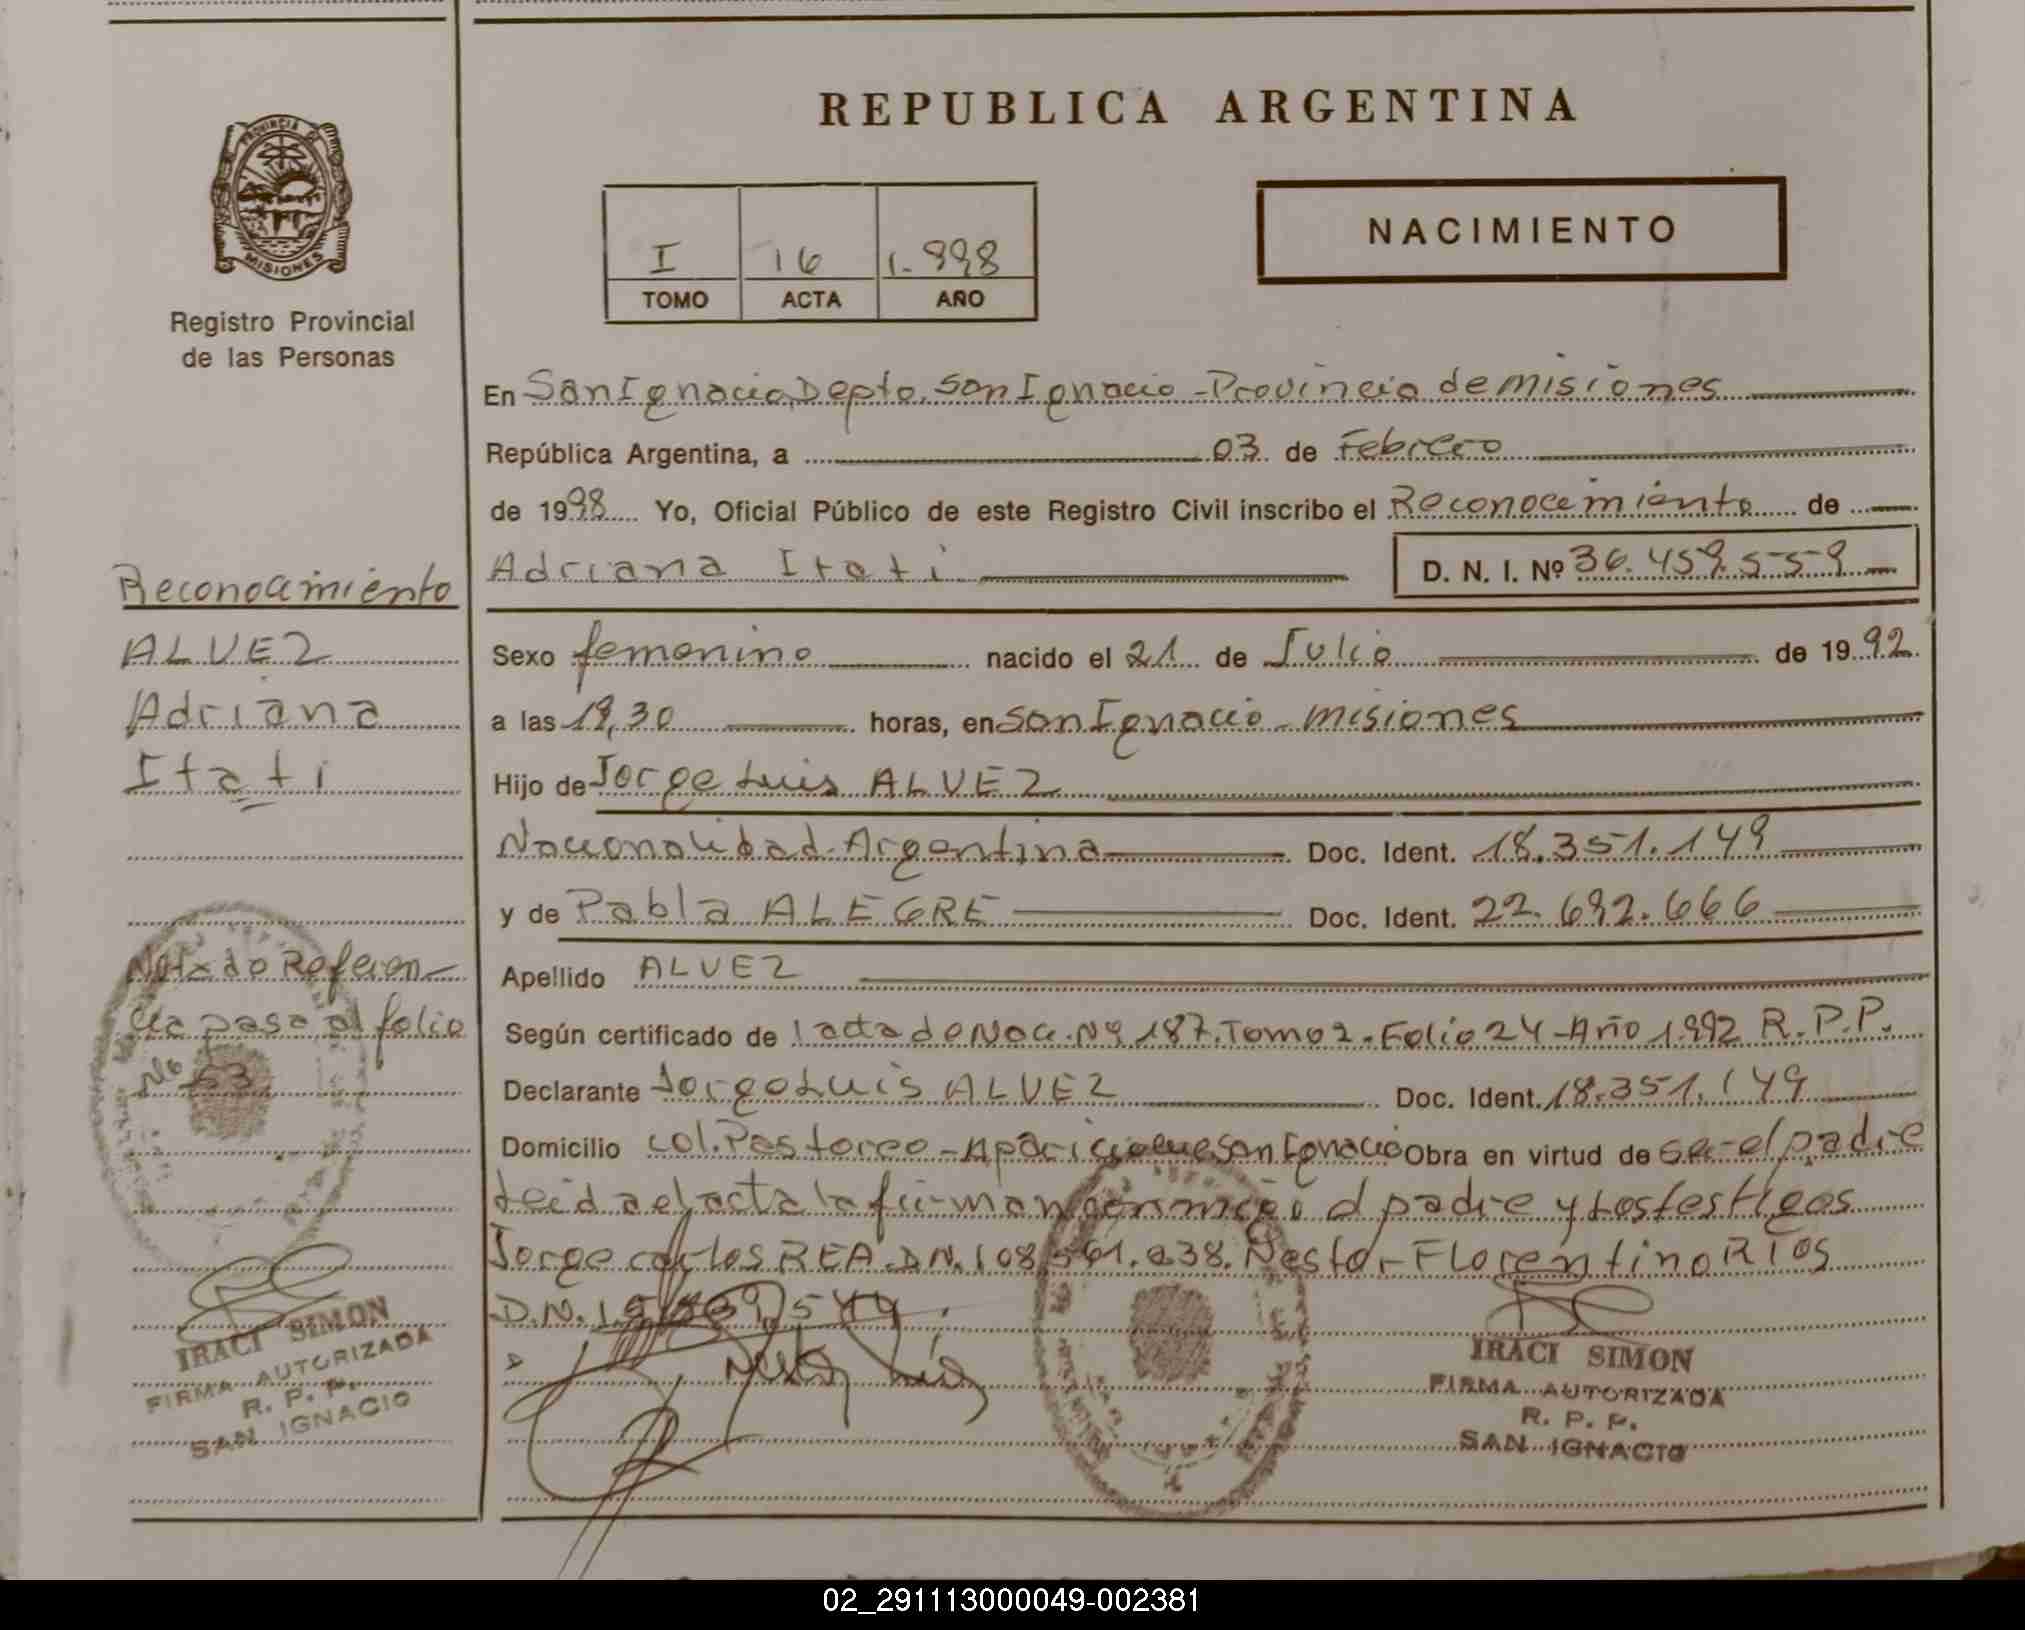 REPUBLICA ARGENTINA
PROVINCIA DE
MISIONES
Registro Provincial
de las Personas
I 16 1.998
TOMO ACTA AÑO
NACIMIENTO
En San Ignacio, Depto. San Ignacio - Provincia de misiones
República Argentina, a 03 de Febrero
de 1998 Yo, Oficial Público de este Registro Civil inscribo el Reconocimiento de
Adriana Itati D. N. I. Nº 36.459.559
Sexo femenino nacido el 21 de Julio de 1992
a las 19,30 horas, en San Ignacio - misiones
Hijo de Jorge Luis ALVEZ
Nacionalidad Argentina Doc. Ident. 18.351.149
y de Pabla ALEGRE Doc. Ident. 22.692.666
Apellido ALVEZ
Según certificado de 1 acta de Nac. Nº 187. Tomo 2. Folio 24 - Año 1.992 R. P. P.
Declarante Jorge Luis ALVEZ Doc. Ident. 18.351.149
Domicilio Col. Pastoreo - San Ignacio Obra en virtud de ser el padre
Leida el acta la firman conmigo el padre y Los testigos
Jorge carlos REA. D.N.I 08. Nestor Florentino RIOS
D.N.I
IRACI SIMON
FIRMA AUTORIZADA
R. P. P.
SAN IGNACIO
Reconocimiento
ALVEZ
Adriana
Itati
Nota de Referen-
cia pasa al folio
Nº 53
IRACI SIMON
FIRMA AUTORIZADA
R. P. P.
SAN IGNACIO
02_291113000049-002381